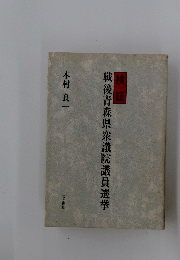 検証
戦後青森県衆議院議員選挙
木村良一